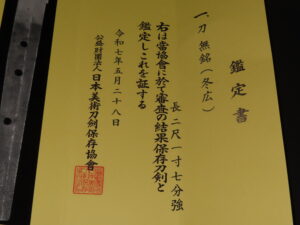 鑑定書
一、刀 無銘(冬広)
長 二尺一寸七分強
右は當協會に於て審査の結果保存刀剣と
鑑定しこれを証する
令和七年五月二十八日
公益財団法人 日本美術刀剣保存協會